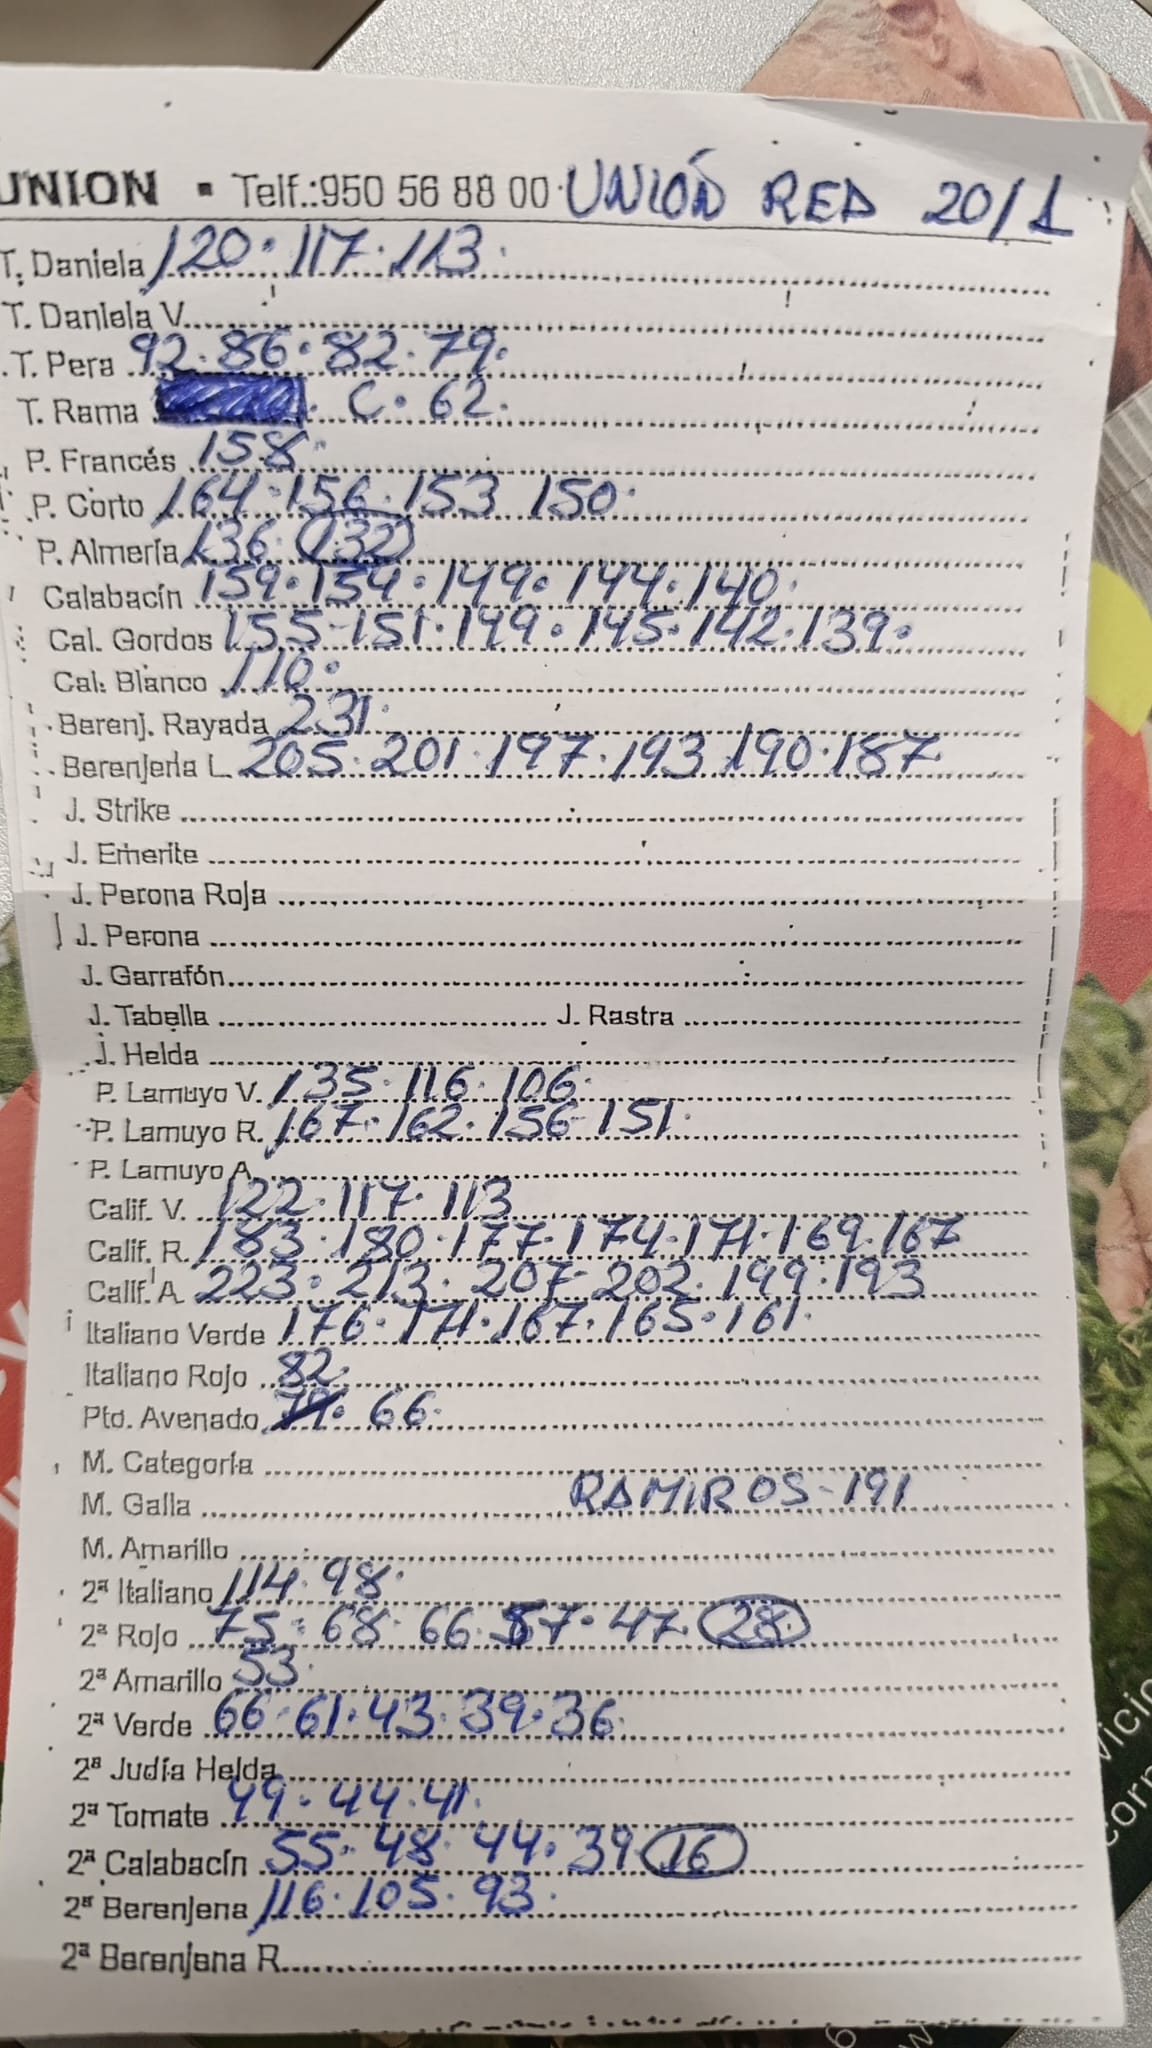 UNION ▪ Telf.:950 56 88 00 UNIÓN RED 20/1
T. Daniela 120. 117. 113.
T. Daniela V.
T. Pera 92. 86. 82. 79.
T. Rama C. 62.
P. Francés 158.
P. Corto 164. 156. 153 150.
P. Almería 136. 132
Calabacín 159. 154. 149. 144. 140.
Cal. Gordos 155-151. 149. 145. 142. 139.
Cal. Blanco 110.
Berenj. Rayada 231.
Berenjena L. 205. 201. 197. 193 190. 187
J. Strike
J. Emerite
J. Perona Roja
J. Perona
J. Garrafón
J. Tabella J. Rastra
J. Helda
P. Lamuyo V. 135. 116. 106.
P. Lamuyo R. 167. 162. 156-151.
P. Lamuyo A.
Calif. V. 122. 117. 113
Calif. R. 183. 180. 177. 174. 171. 169. 167
Calif. A. 223. 213. 207-202. 199. 193
Italiano Verde 176. 171. 167. 165. 161.
Italiano Rojo 82.
Pto. Avenado 79. 66.
M. Categoría
M. Galla RAMIROS-191
M. Amarillo
2ª Italiano 114. 98.
2ª Rojo 75. 68. 66. 57. 47. 28.
2ª Amarillo 53.
2ª Verde 66. 61. 43. 39. 36.
2ª Judía Helda
2ª Tomate 49. 44. 41.
2ª Calabacín 55. 48. 44. 39. 16
2ª Berenjena 116. 105. 93.
2ª Berenjena R.